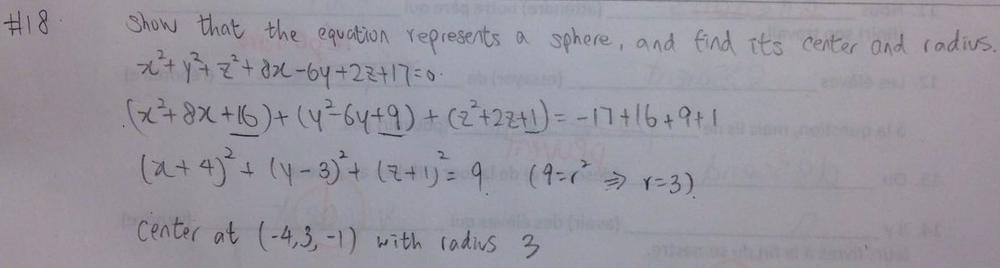 #18 Show that the equation represents a sphere, and find its center and radius.
x²+y²+z²+8x-6y+2z+17=0.
(x²+8x+16)+(y²-6y+9)+(z²+2z+1)=-17+16+9+1
(x+4)²+(y-3)²+(z+1)²=9. (9=r² ⇒ r=3).
center at (-4,3,-1) with radius 3